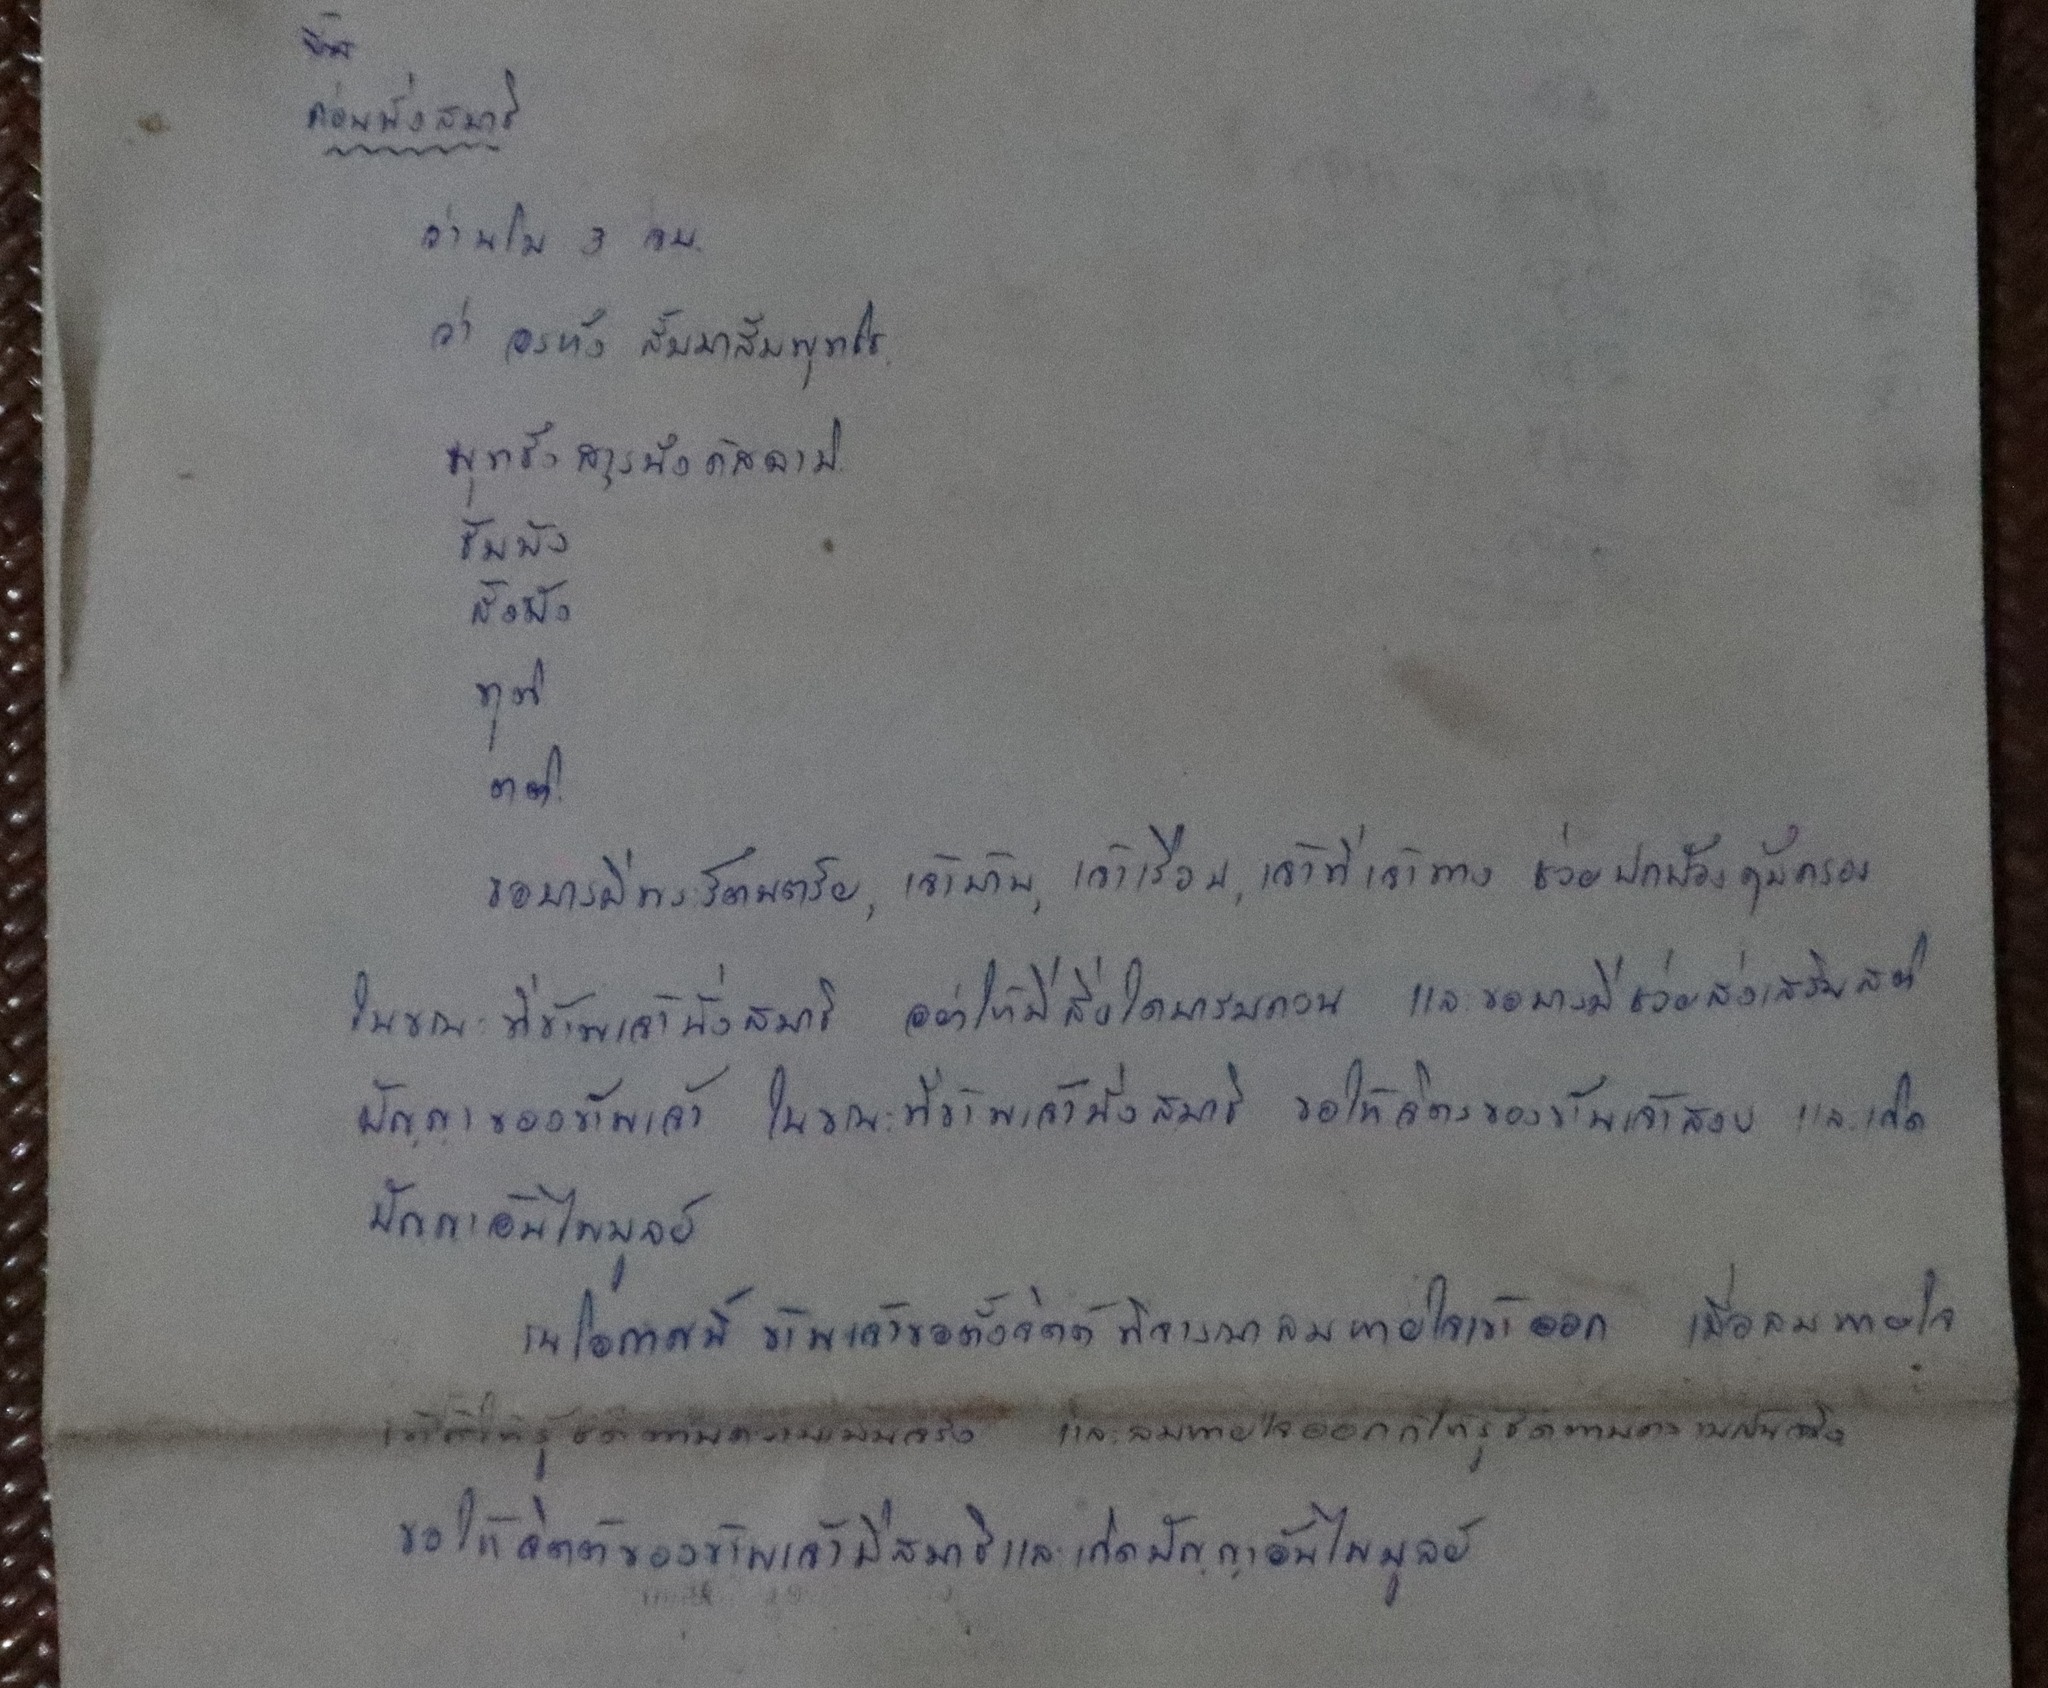 ก่อนนั่งสมาธิ
ว่านโม 3 จบ.
ว่า อรหัง สัมมาสัมพุทโธ.
พุทธัง สรณัง คัสฉามิ.
ธัมมัง
สังฆัง
ทุติ
ตติ.
ขอบารมีพระรัตนตรัย, เจ้าบ้าน, เจ้าเรือน, เจ้าที่เจ้าทาง ช่วยปกป้องคุ้มครอง
ในขณะที่ข้าพเจ้านั่งสมาธิ อย่าให้มีสิ่งใดมารบกวน และขอบารมีช่วยส่งเสริมสติ
ปัญญาของข้าพเจ้า ในขณะที่ข้าพเจ้านั่งสมาธิ ขอให้จิตของข้าพเจ้าสงบ และเกิด
ปัญญาอันไพบูลย์
ณโอกาสนี้ ข้าพเจ้าขอตั้งจิตต์พิจารณาลมหายใจเข้าออก เมื่อลมหายใจ
เข้าก็ให้รู้ชัดตามความเป็นจริง และลมหายใจออกก็ให้รู้ชัดตามความเป็นจริง
ขอให้จิตต์ของข้าพเจ้ามีสมาธิและเกิดปัญญาอันไพบูลย์